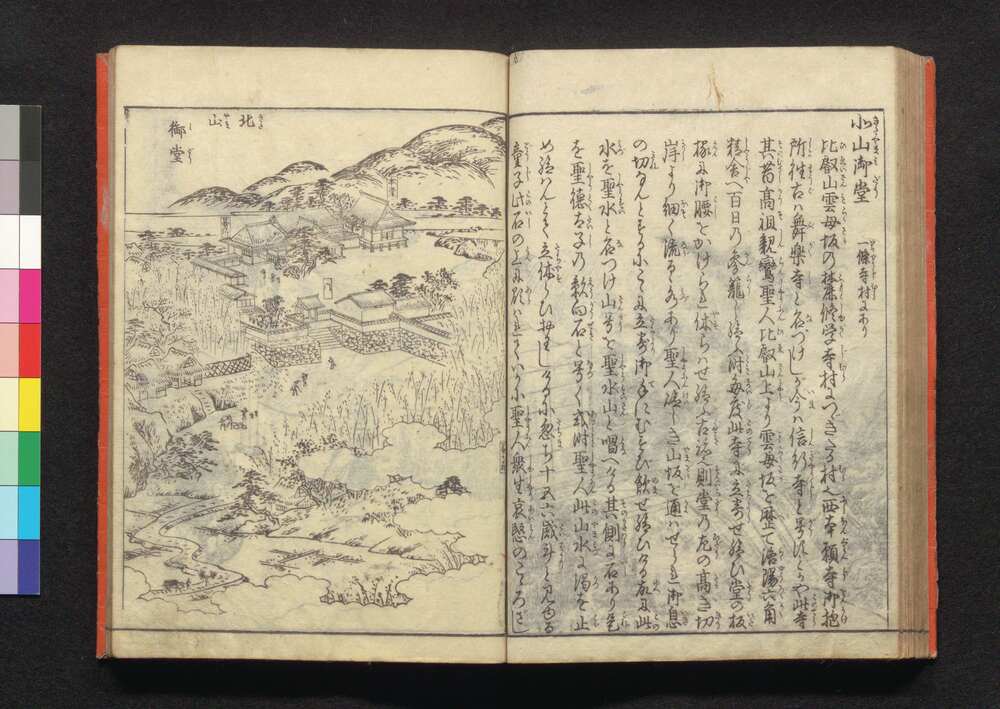 北山御堂
一條寺村にあり
比叡山雲母坂の麓修学寺村のつゞきたる村也西本願寺御抱
所往古は舞樂寺と名づけしが今は信行寺と号けるとかや此寺
其昔高祖親鸞聖人比叡山上より雲母坂を歴て洛陽六角
精舎へ百日の参籠し給ふ時毎度此寺に立寄せ給ひ堂の板
椽に御腰をかけられ休らはせ給ふ古跡則堂の左の高き切
岸より細く流るゝ水あり聖人嶮しき山坂を通はせられ御息
の切なんとするにこゝに立寄御手にむすび飲せ給ひける故に此
水を聖水と名づけ山号を聖水山と唱へける其側に石あり是
を聖德太子の影向石と号く或時聖人此山水に渇を止
め給はんとて立休らひ拝れしけるに忽ち十五六歳斗と見ゆる
童子此石の上に顕はれていかに聖人衆生哀愍のこゝろざし
北山
御堂